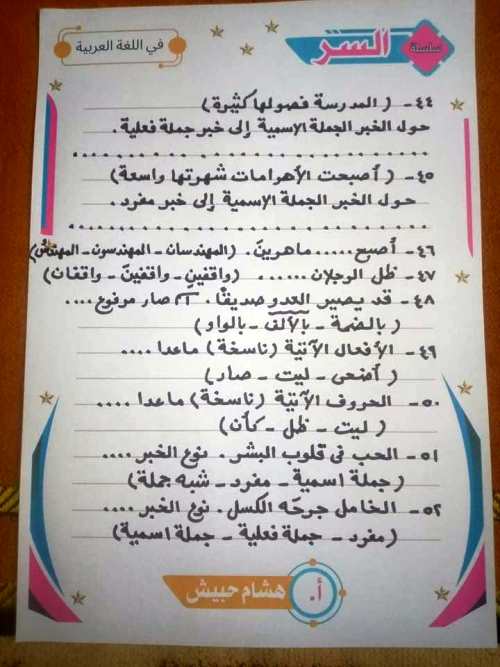 سلسلة
السر
في اللغة العربية
٤٤- ( المدرسة فصولها كثيرة )
حول الخبر الجملة الإسمية إلى خبر جملة فعلية .
٤٥- ( أصبحت الأهرامات شهرتها واسعة )
حول الخبر الجملة الإسمية إلى خبر مفرد .
٤٦- أصبح ..... ماهرين . ( المهندسان - المهندسون - المهندس )
٤٧- ظل الرجلان ...... ( واقفين - واقفين - واقفان )
٤٨- قد يصير العدو صديقًا . اسم صار مرفوع ....
( بالضمة - بالألف - بالواو )
٤٩- الأفعال الآتية ( ناسخة ) ماعدا ....
( أضحى - ليت - صار )
٥٠- الحروف الآتية ( ناسخة ) ماعدا ....
( ليت - ظل - كأن )
٥١- الحب في قلوب البشر . نوع الخبر ....
( جملة اسمية - مفرد - شبه جملة )
٥٢- الخامل جرحه الكسل . نوع الخبر ....
( مفرد - جملة فعلية - جملة اسمية )
أ. هشام حبيش